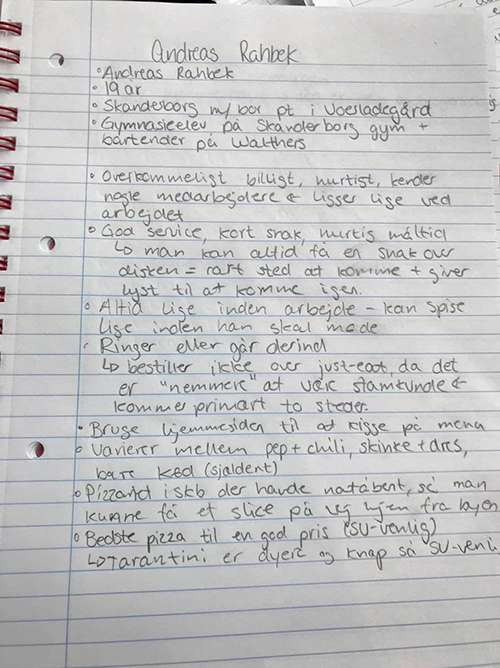 Andreas Rahbek
• Andreas Rahbek
• 19 år
• Skanderborg m/bor pt i Voerladegård
• Gymnasieelev på Skanderborg gym +
bartender på Walthers
• Overkommeligt billigt, hurtigt, kender
nogle medarbejdere & ligger lige ved
arbejdet
• God service, kort snak, hurtig måltid
↳ man kan altid få en snak over
disken = rart sted at komme + giver
lyst til at komme igen.
• Altid lige inden arbejde - kan spise
lige inden han skal møde
• Ringer eller går derind
↳ bestiller ikke over just-eat, da det
er "nemmere" at være stamkunde &
komme primært to steder.
• Bruge hjemmesiden til at kigge på menu
• Varierer mellem pep + chili, skinke +
bare kød (sjældent)
• Pizzaria i skb der havde natåbent, så man
kunne få et slice på vej hjem fra byen
• Bedste pizza til en god pris (SU-venlig)
↳ Tarantini er dyere og knap så SU-venli